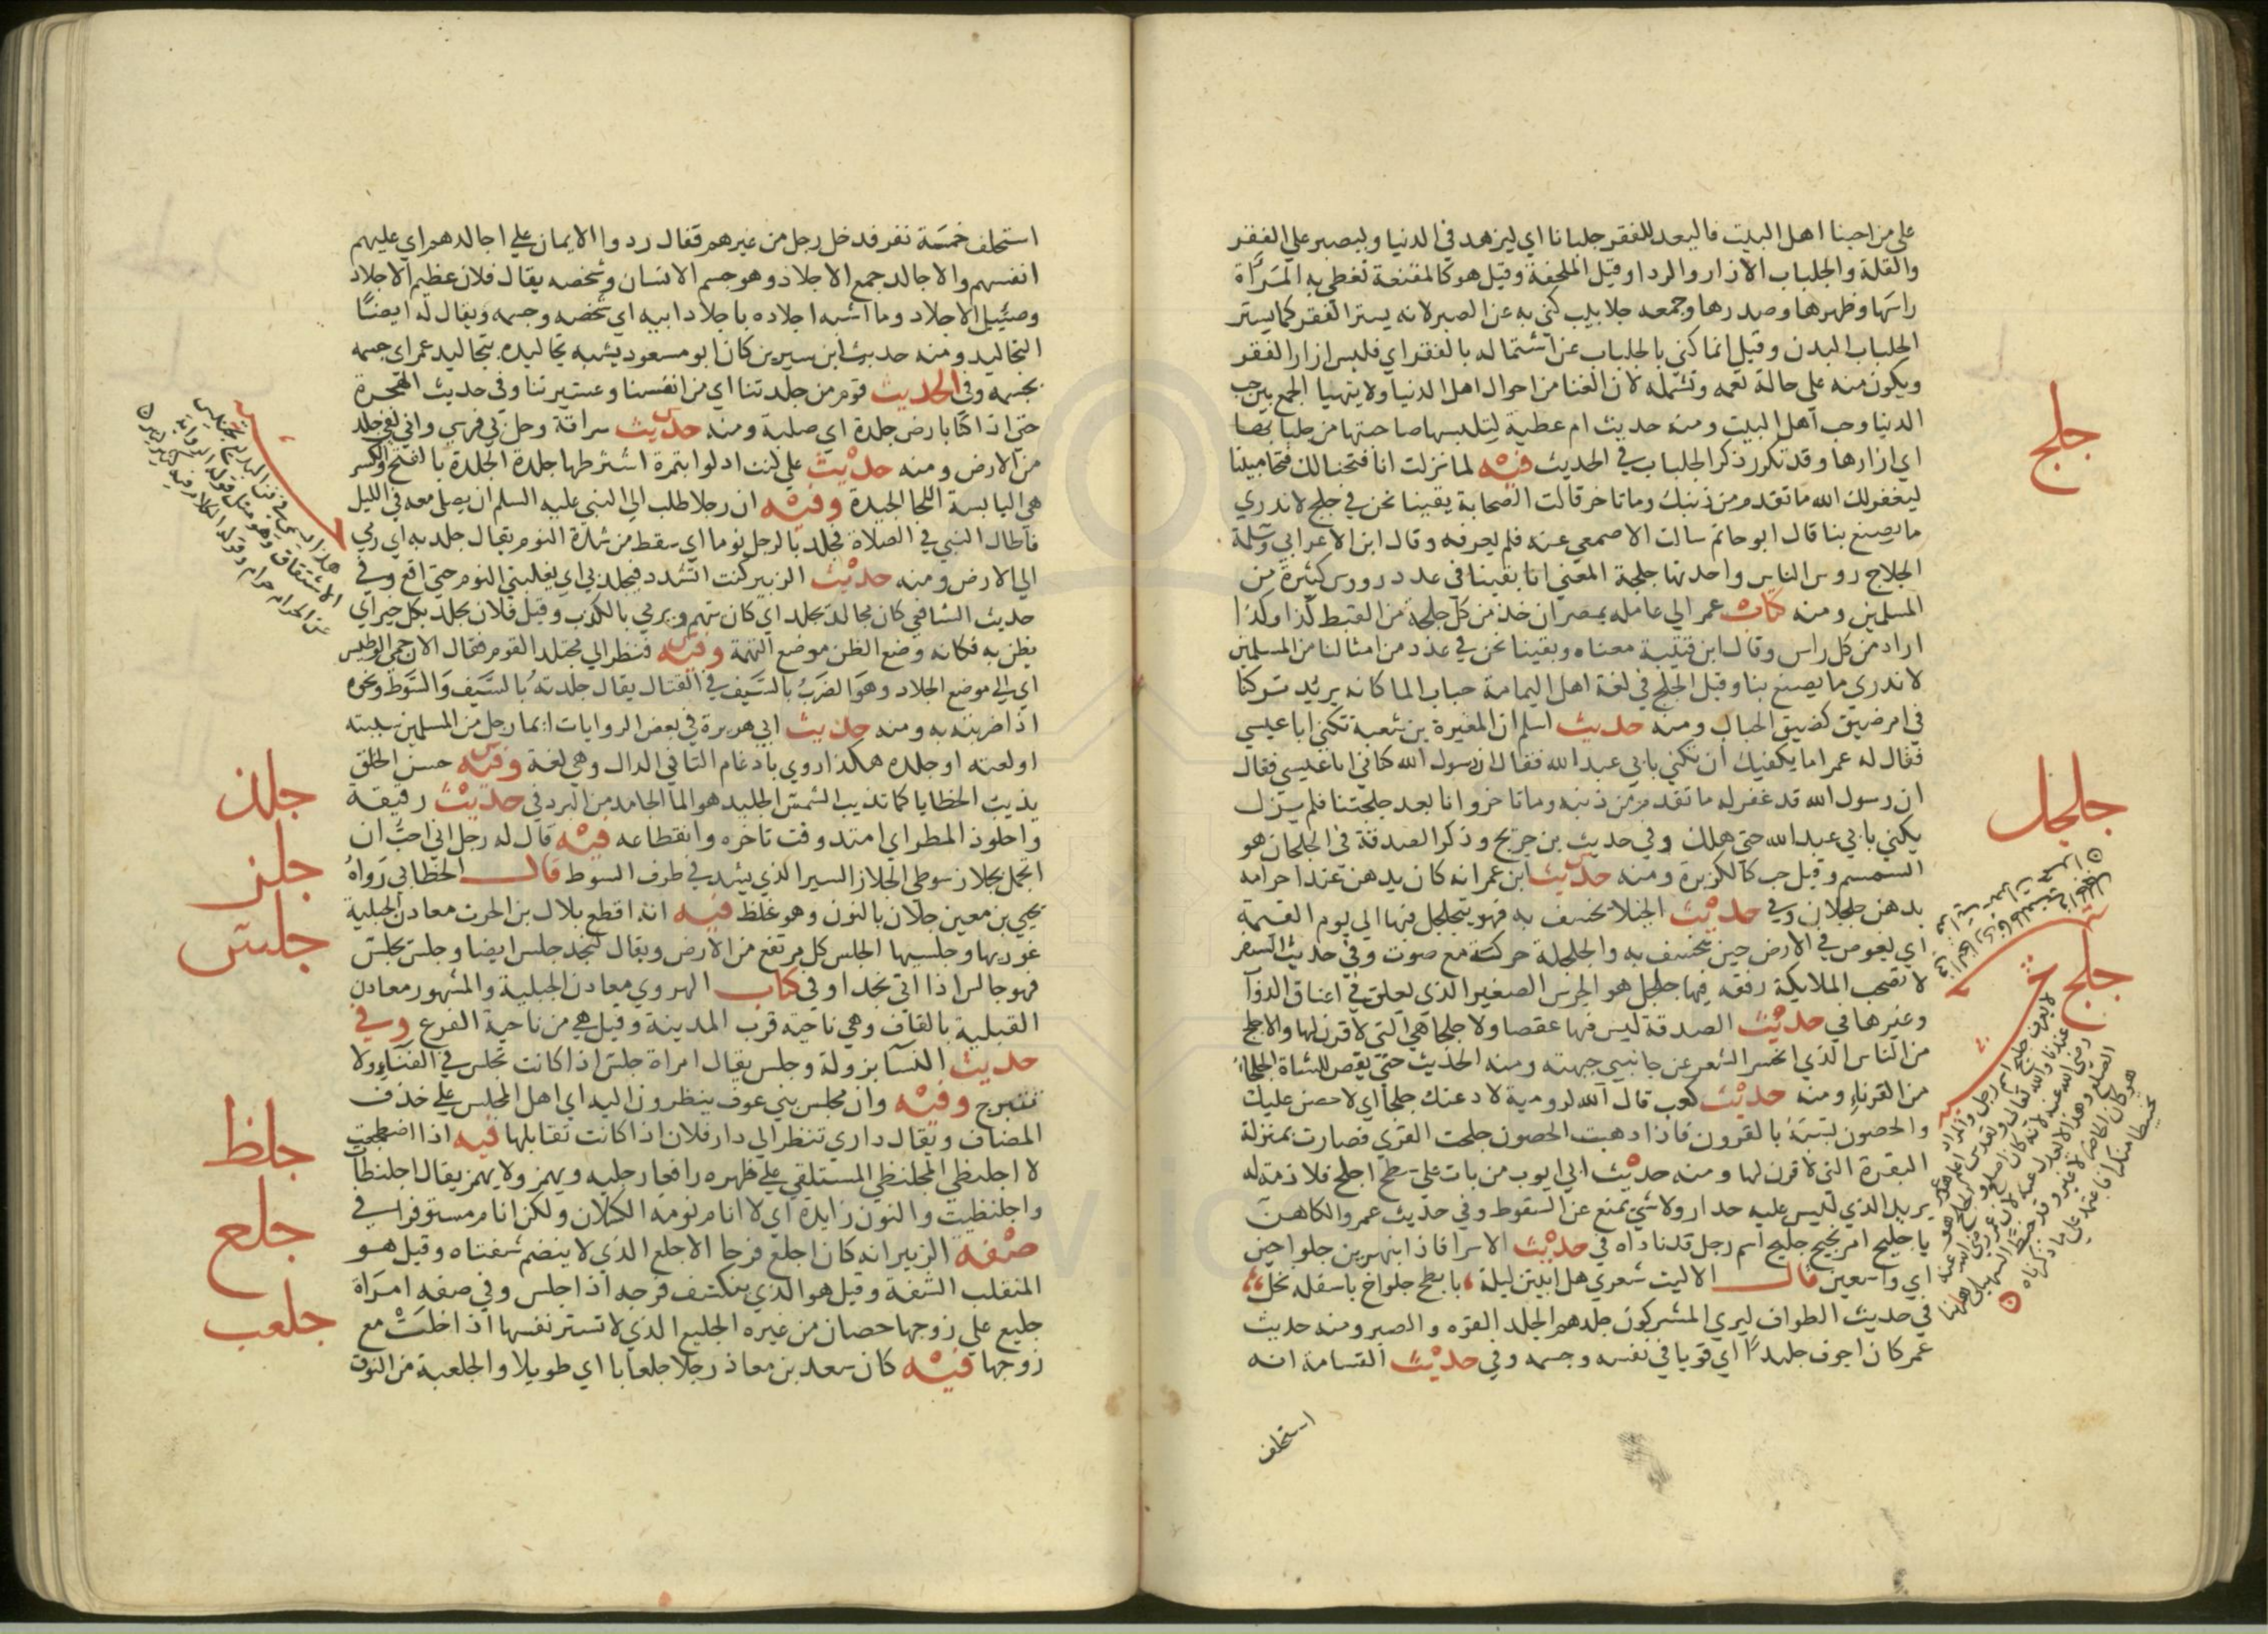 على من احبنا اهل البيت فاليعد للفقر جلبابا اي ليزهد في الدنيا وليصبر علي الفقر
والقلة والجلباب الازار والردا وقيل الملحفة وقيل هو كالمقنعة تغطي به المراة
راسها وظهرها وصدرها وجمعه جلابيب كني به عن الصبر لانه يستر الفقر كما يستر
الجلباب البدن وقيل انما كني بالجلباب عن اشتماله بالفقر اي فليس ازار الفقر
ويكون منه علي حالة تعمه وتشمله لان الغنا من احوال اهل الدنيا ولا يتهيا الجمع بين حب
الدنيا وحب اهل البيت ومنه حديث ام عطية لتلبسها صاحبتها من جلبابها
اي ازارها وقد تكرر ذكر الجلباب في الحديث فيه لما نزلت انا فتحنا لك فتحا مبينا
ليغفر لك الله ما تقدم من ذنبك وما تاخر قالت الصحابة بقينا نحن في جلج لا ندري
ما يصنع بنا قال ابو حاتم سالت الاصمعي عنه فلم يعرفه وقال ابن الاعرابي وسلمة
الجلاج روس الناس واحدتها جلجة المعني انا بقينا في عدد روس كثيرة من
المسلمين ومنه كتاب عمر الي عامله بمصر ان خذ من كل جلجة من القبط كذا وكذا
اراد من كل راس وقال ابن قتيبة معناه وبقينا نحن في عدد من امثالنا من المسلمين
لا ندري ما يصنع بنا وقيل الجلج في لغة اهل اليمامة حباب الما كانه يريد تركنا
في امر ضيق كضيق الحباب ومنه حديث اسلم ان المغيرة بن شعبة تكني ابا عيسي
فقال له عمر اما يكفيك ان تكني بابي عبد الله فقال ان رسول الله كناني ابا عيسي فقال
ان رسول الله قد غفر له ما تقدم من ذنبه وما تاخر وانا بعد جلجتنا فلم يزل
يكني بابي عبد الله حتي هلك وفي حديث بن جريج وذكر الصدقة في الجلجلان هو
السمسم وقيل حب كالكزبرة ومنه حديث ابن عمر انه كان يدهن عند احرامه
بدهن جلجلان وفي حديث الخيلا يخسف به فهو يتجلجل فيها الي يوم القيمة
اي يغوص في الارض حين يخسف به والجلجلة حركة مع صوت وفي حديث السفر
لا تصحب الملايكة رفقة فيها جلجل هو الجرس الصغير الذي يعلق في اعناق الدوآ
وغيرها في حديث الصدقة ليس فيها عقصا ولا جلحا هي التي لا قرن لها والاجلح
من الناس الذي انحسر الشعر عن جانبي جبهته ومنه الحديث حتي يقص للشاة الجلحا
من القرناء ومنه حديث كعب قال الله لرومية لادعنك جلحا اي لا حصن عليك
والحصون تشبه بالقرون فاذا دهبت الحصون جلحت القري فصارت بمنزلة
البقرة التي لا قرن لها ومنه حديث ابي ايوب من بات علي سطح اجلح فلا ذمة له
يريد الذي ليس عليه جدار ولا شي يمنع عن السقوط وفي حديث عمر والكاهن
يا جليح امر نجيح جليح اسم رجل قد ناداه في حديث الاسرا فاذا بنهرين جلواخين
اي واسعين قال الا ليت شعري هل ابيتن ليلة بابطح جلواخ باسفله نخل
في حديث الطواف ليري المشركون جلدهم الجلد القوه والصبر ومنه حديث
عمر كان اجوف جليدا اي قويا في نفسه وجسمه وفي حديث القسامة انه
استحلف
جلج
جلجل
جلح
استحلف خمسة نفر فدخل رجل من غيرهم فقال ردوا الايمان علي اجالدهم اي عليهم
انفسهم والاجالد جمع الاجلاد وهو جسم الانسان وشخصه يقال فلان عظيم الاجلاد
وضئيل الاجلاد وما اشبه اجلاده باجلاد ابيه اي شخصه وجسمه ويقال له ايضًا
التجاليد ومنه حديث ابن سيرين كان ابو مسعود يشبه تجاليده بتجاليد عمر اي جسمه
بجسمه وفي الحديث قوم من جلدتنا اي من انفسنا وعشيرتنا وفي حديث الهجرة
حتي اذا كنا بارض جلدة اي صلبة ومنه حديث سراقة وحل بي فرسي واني لفي جلد
من الارض ومنه حديث علي كنت ادلوا بتمرة اشترطها جلدة الجلدة بالفتح والكسر
هي اليابسة اللحا الجيدة وفيه ان رجلا طلب الي النبي عليه السلم ان يصلي معه في الليل
فاطال النبي في الصلاة فجلد بالرجل نوما اي سقط من شدة النوم يقال جلد به اي رمي
الي الارض ومنه حديث الزبير كنت اتشدد فيجلد بي اي يغلبني النوم حتي اقع وفي
حديث الشافعي كان مجالد يجلد اي كان يتهم ويرمي بالكذب وقيل فلان يجلد بكل خير اي
يظن به فكانه وضع الظن موضع التهمة وفيه فنظر الي مجتلد القوم فقال الان حمي الوطيس
اي الي موضع الجلاد وهو الضرب بالسيف في القتال يقال جلدته بالسيف والسوط ونحوه
اذا ضربته به ومنه حديث ابي هريرة في بعض الروايات ايما رجل من المسلمين سببته
او لعنته او جلده هكذا روي بادغام التا في الدال وهي لغة وفيه حسن الخلق
يذيب الخطايا كما تذيب الشمس الجليد هو الما الجامد من البرد في حديث رقيقة
واجلوذ المطر اي امتد وقت تاخره وانقطاعه فيه قال له رجل اني احب ان
اتجمل بجلاز سوطي الجلاز السير الذي يشد في طرف السوط قال الخطابي رواه
يحيي بن معين جلان بالنون وهو غلط فيه انه اقطع بلال بن الحرث معادن الجبلية
غوريها وجلسيها الجلس كل مرتفع من الارض ويقال لنجد جلس ايضا وجلس يجلس
فهو جالس اذا اتي نجدا وفي كتاب الهروي معادن الجبلية والمشهور معادن
القبلية بالقاف وهي ناحية قرب المدينة وقيل هي من ناحية الفرع وفي
حديث النسآ بزولة وجلس يقال امراة جلس اذا كانت تجلس في الفناء ولا
تتبرج وفيه وان مجلس بني عوف ينظرون اليه اي اهل المجلس علي خذف
المضاف ويقال داري تنظر الي دار فلان اذا كانت تقابلها فيه اذا اضطجعت
لا اجلنظي المجلنظي المستلقي علي ظهره رافعا رجليه ويهمز ولا يهمز يقال اجلنظات
واجلنظيت والنون زايدة اي لا انام نومة الكسلان ولكن انام مستوفرا في
صفة الزبير انه كان اجلع فرجا الاجلع الذي لا ينضم شفتاه وقيل هو
المنقلب الشفة وقيل هو الذي ينكشف فرجه اذا جلس وفي صفه امراة
جليع علي زوجها حصان من غيره الجليع الذي لا تستر نفسها اذا خلت مع
زوجها فيه كان سعد بن معاذ رجلا جلعابا اي طويلا والجلعبة من النوق
جلذ
جلز
جلس
جلظ
جلع
جلعب